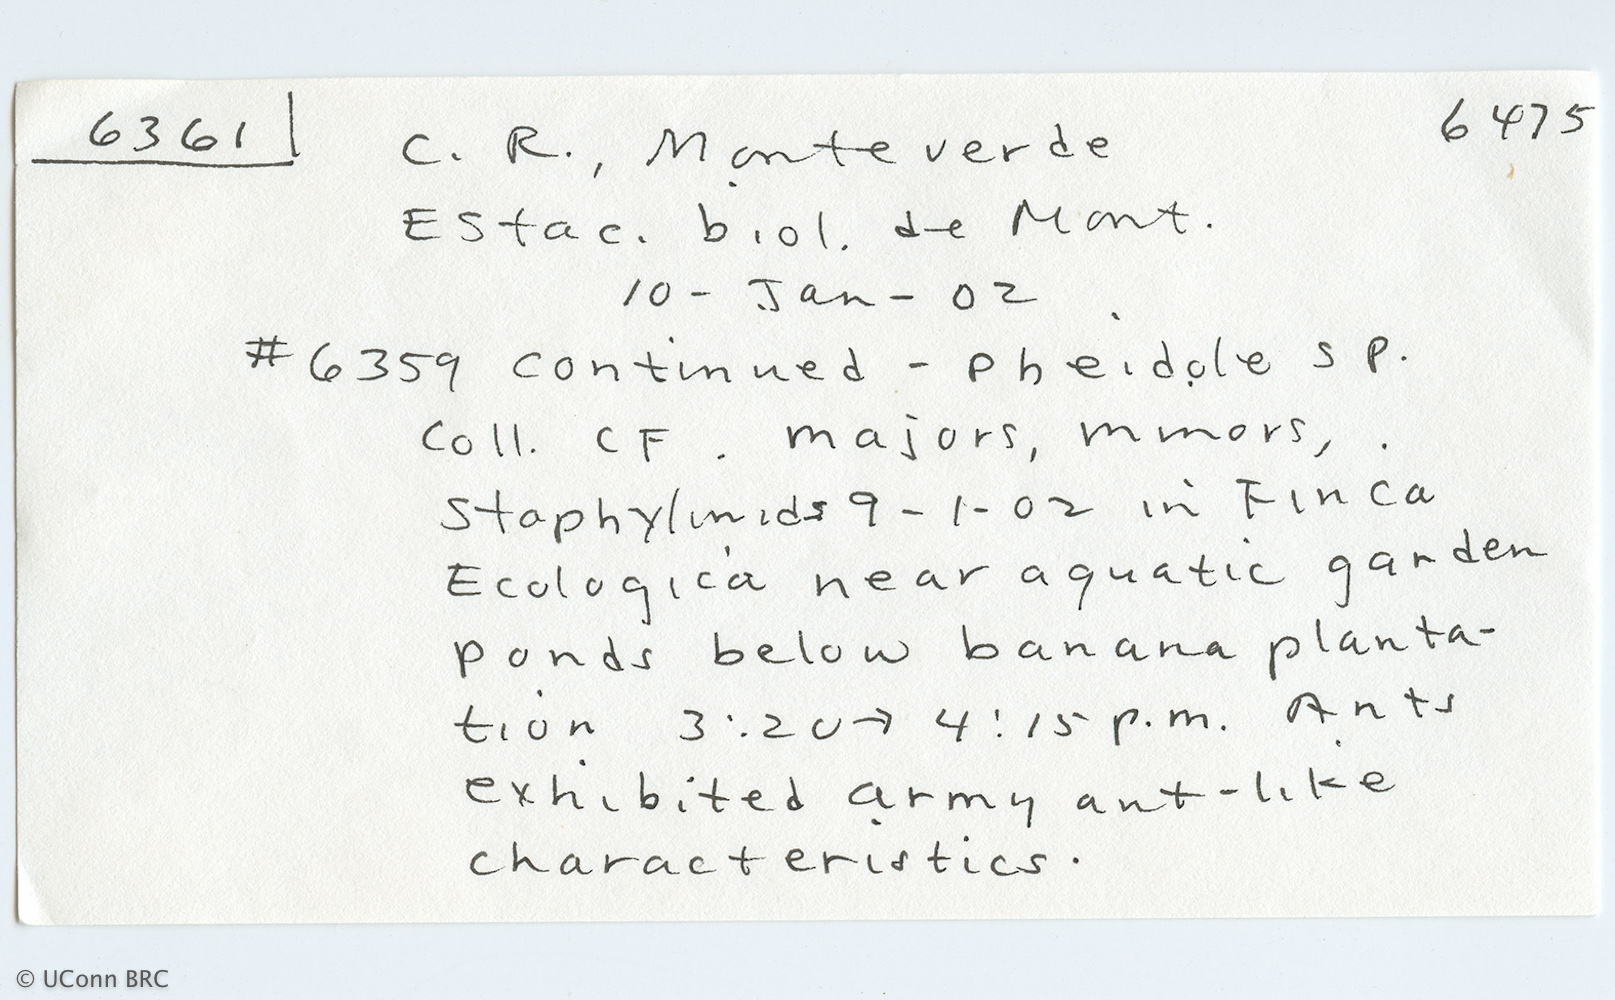 6361 C. R., Monteverde 6475
Estac. biol. de Mont.
10-Jan-02
#6359 continued - Pheidole sp.
Coll. CF. majors, minors,
Staphylinids 9-1-02 in Finca
Ecologica near aquatic garden
ponds below banana planta-
tion 3:20→4:15 p.m. Ants
exhibited army ant-like
characteristics.
© UConn BRC